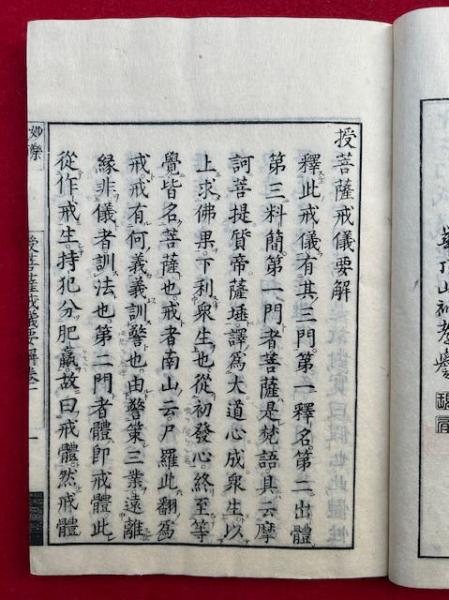 授菩薩戒儀要解
釋此戒儀有其三門第一釋名第二出體
第三料簡第一門者菩薩是梵語具云摩
訶菩提質帝薩埵譯爲大道心成衆生以
上求佛果下利衆生也從初發心終至等
覺皆名菩薩也戒者南山云尸羅此翻爲
戒戒有何義義訓警也由警策三業遠離
緣非儀者訓法也第二門者體即戒體此
從作戒生持犯分肥羸故曰戒體然戒體
授菩薩戒儀要解卷一